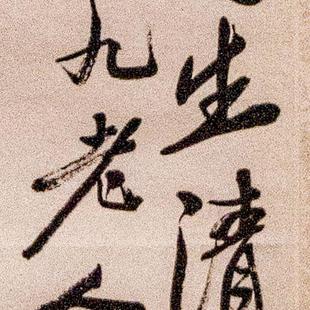 生清
九老